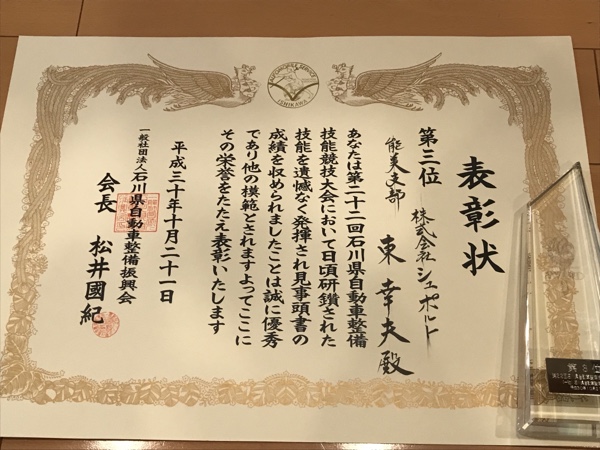 表彰状
第三位 株式会社シュポルト
能美支部 東幸夫殿
あなたは第二十二回石川県自動車整備
技能競技大会において日頃研鑽された
技能を遺憾なく発揮され見事頭書の
成績を収められましたことは誠に優秀
であり他の模範とされますよってここに
その栄誉をたたえ表彰いたします
平成三十年十月二十一日
一般社団法人石川県自動車整備振興会
会長 松井國紀
AUTOMOBILE SERVICE
ISHIKAWA